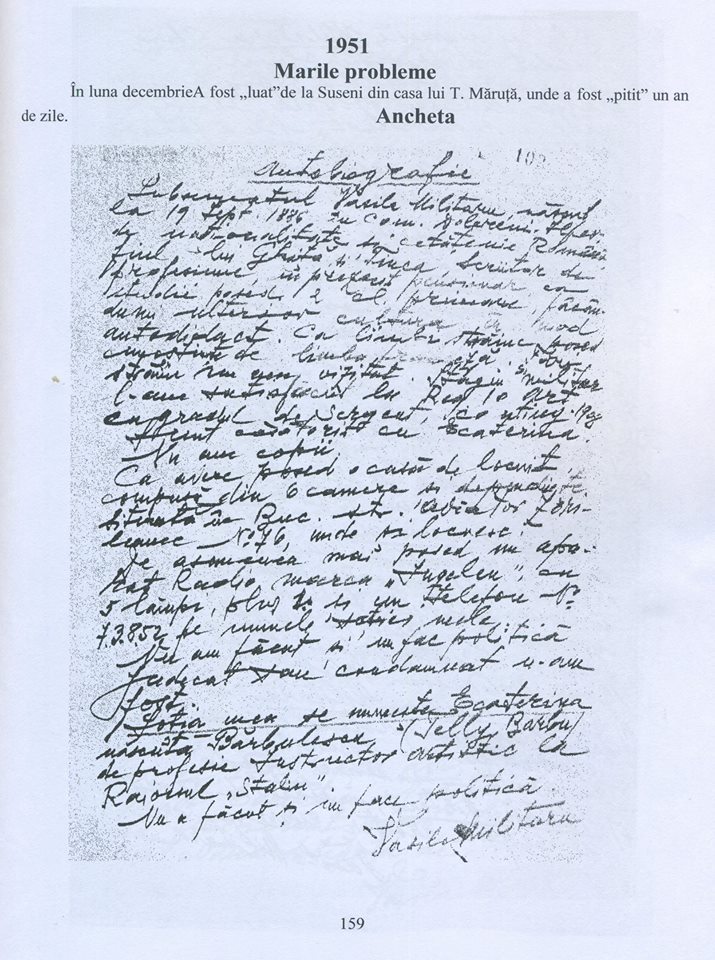 1951
Marile probleme
În luna decembrieA fost „luat"de la Suseni din casa lui T. Măruță, unde a fost „pitit" un an
de zile. Ancheta
10
Autobiografie
Subsemnatul Vasile Militaru, născut
la 19 Sept. 1886 în com. Dobreni-
de naționalitate și cetățenie Română
fiul lui Ghiță și Inca, Scriitor de
profesiune, în prezent pensionar ca
studii posed 2 cl. primare, făcân
du-mi ulterior cultura în mod
autodidact. Ca limbi străine posed
cunoștințe de limba franceză.
străin nu am vizitat. Stagiu militar
l-am satisfăcut la Reg 10 Art
cu gradul de Sergent, conting. 1908
Sunt căsătorit cu Ecaterina.
Nu am copii
Ca avere posed o casă de locuit,
compusă din 6 camere și dependințe
situată în Buc. str. Aviator
No 76, unde și locuesc.
De asemenea mai posed un apa-
rat Radio, marca „Ingelen", cu
5 lămpi, plus și un telefon No
7.38.52 pe numele meu.
Nu am făcut și nu fac politică
Judecat sau condamnat n-am
fost.
Soția mea se numește Ecaterina
născută Bărbulescu (Jelly Barbu)
de profesie Instructor artistic la
Raionul „Stalin"
Nu a făcut și nu face politică
Vasile Militaru
159